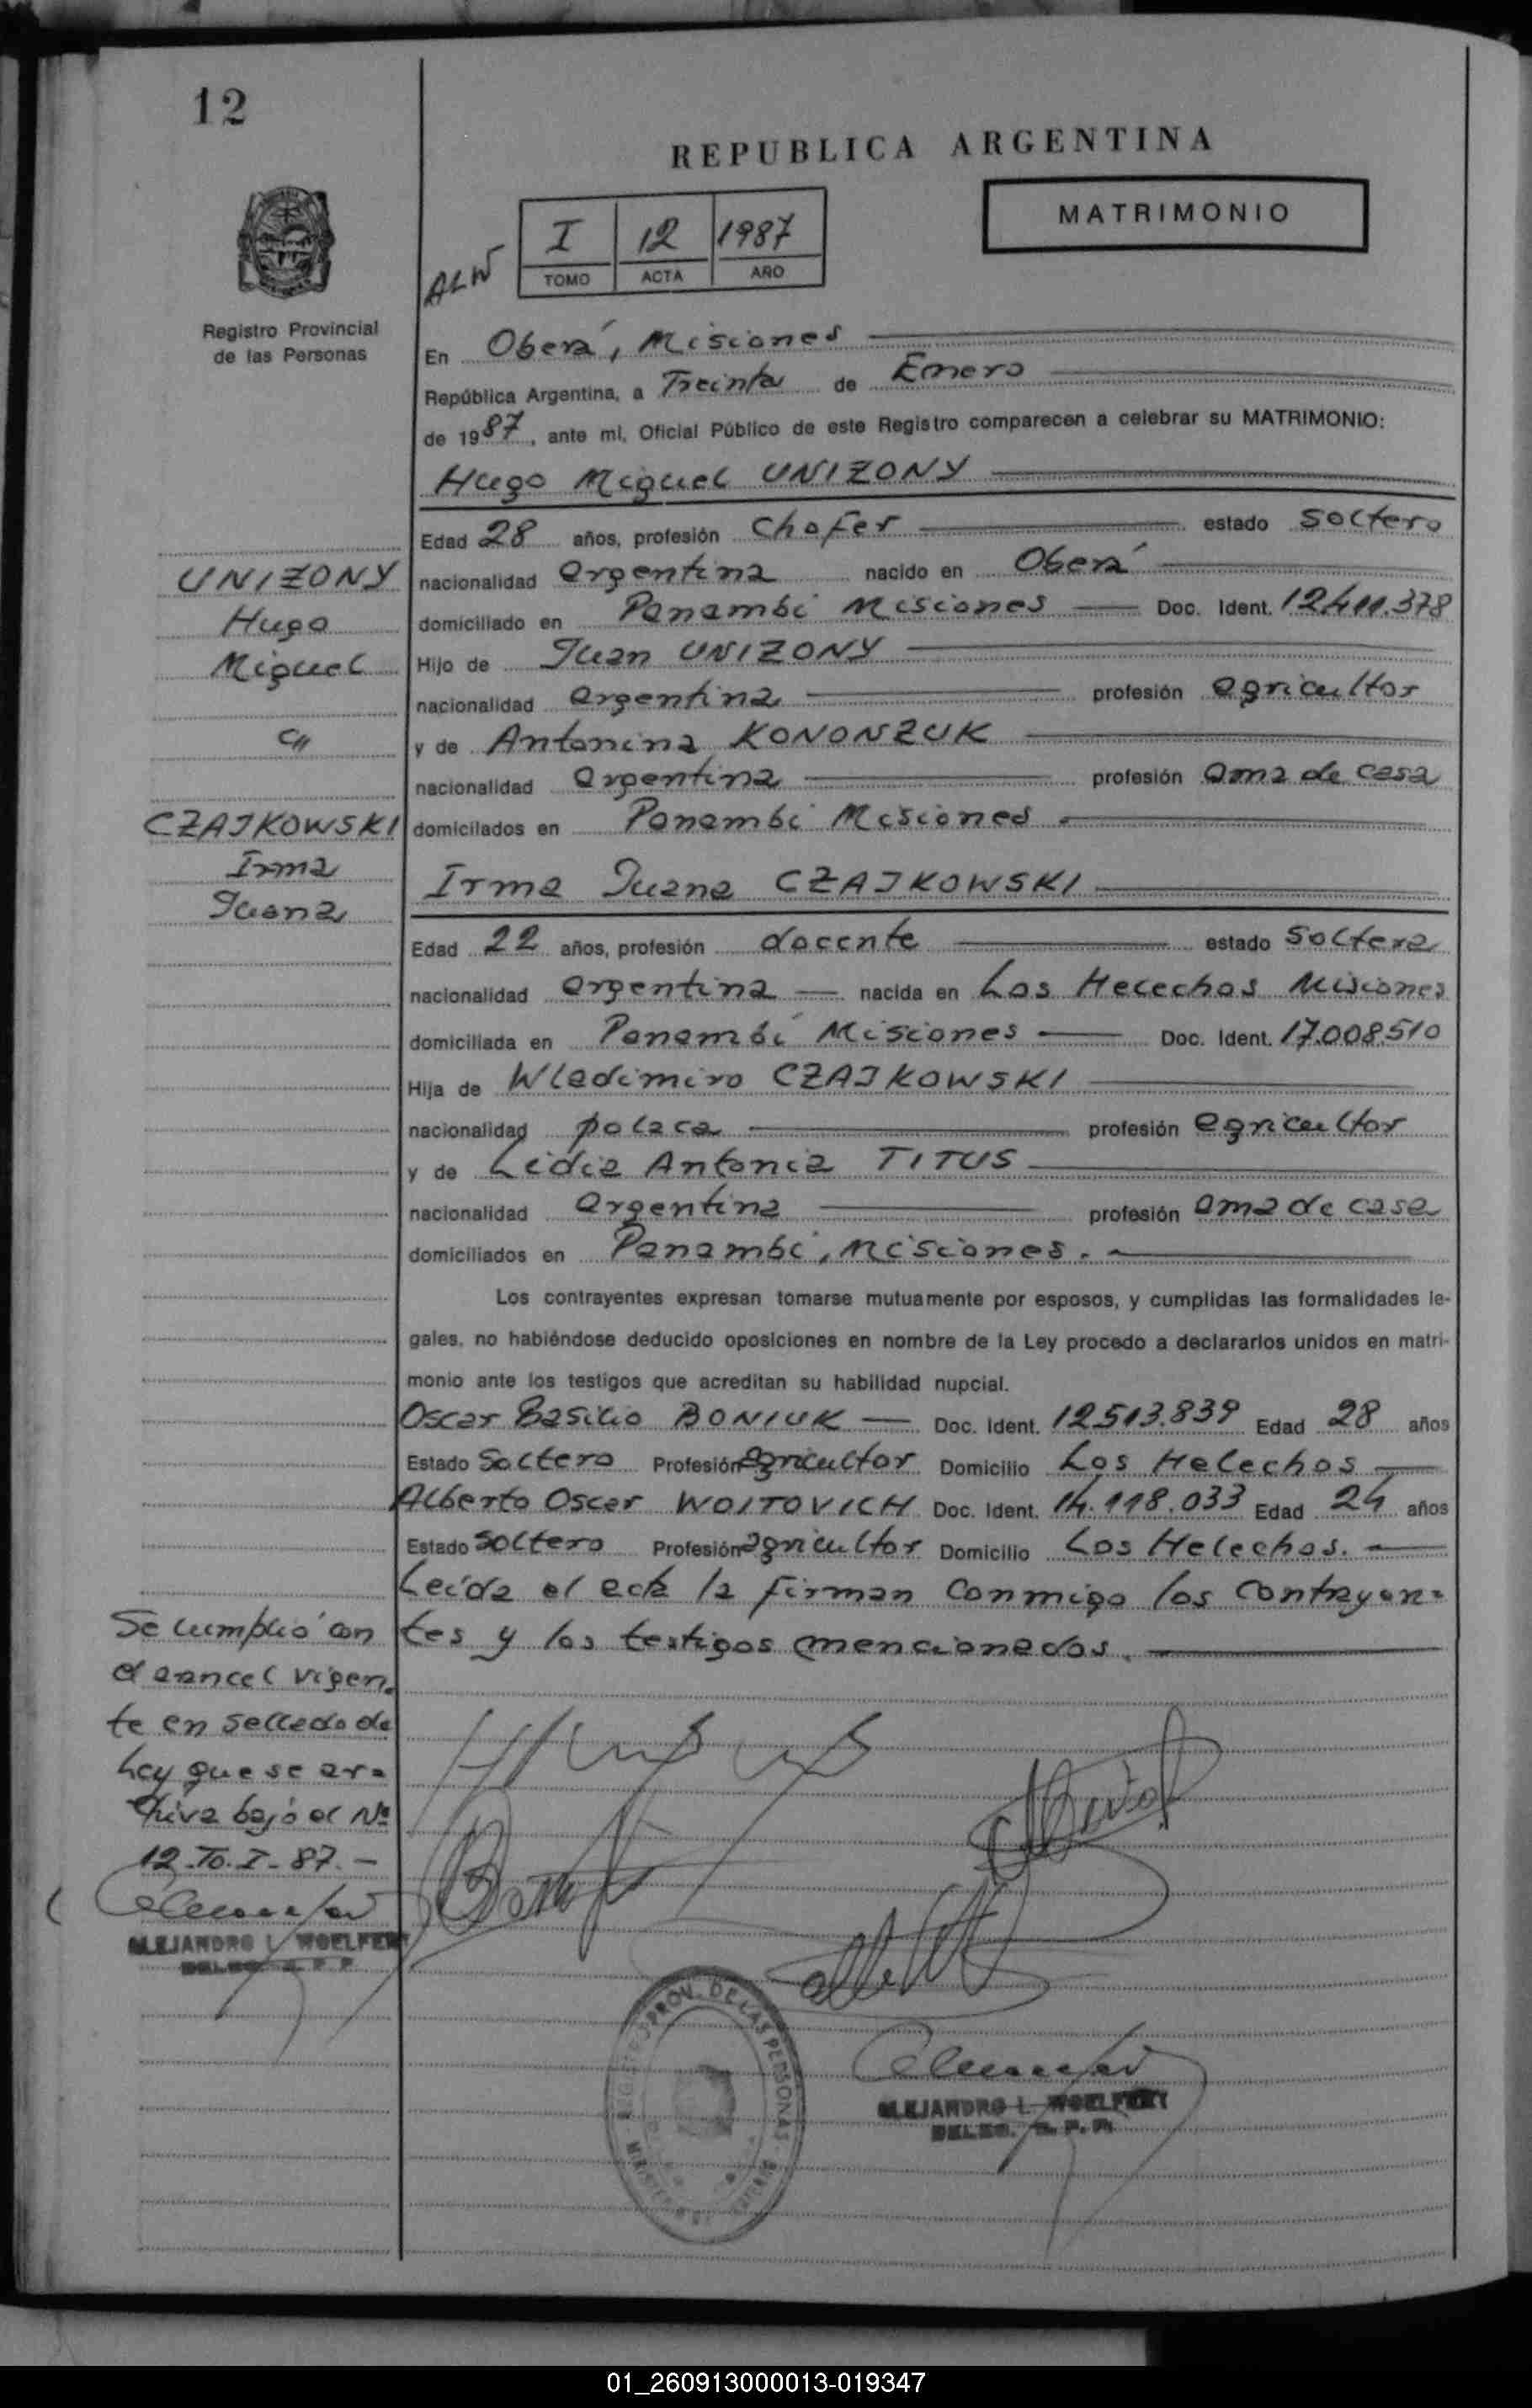 12
REPUBLICA ARGENTINA
MATRIMONIO
I 12 1987
TOMO ACTA AÑO
ALW
Registro Provincial
de las Personas
En Oberá, Misiones
República Argentina, a Treinta de Enero
de 1987, ante mí, Oficial Público de este Registro comparecen a celebrar su MATRIMONIO:
Hugo Miguel UNIZONY
Edad 28 años, profesión Chofer estado soltero
nacionalidad argentina nacido en Oberá
domiciliado en Panambí Misiones Doc. Ident. 12.411.378
Hijo de Juan UNIZONY
nacionalidad argentina profesión agricultor
y de Antonina KONONZUK
nacionalidad argentina profesión ama de casa
domicilados en Panambí Misiones
Irma Juana CZAJKOWSKI
Edad 22 años, profesión docente estado soltera
nacionalidad argentina nacida en Los Helechos Misiones
domiciliada en Panambí Misiones Doc. Ident. 17.008.510
Hija de Wladimiro CZAJKOWSKI
nacionalidad polaca profesión agricultor
y de Lidia Antonia TITUS
nacionalidad argentina profesión ama de casa
domiciliados en Panambí, Misiones.
Los contrayentes expresan tomarse mutuamente por esposos, y cumplidas las formalidades le-
gales, no habiéndose deducido oposiciones en nombre de la Ley procedo a declararlos unidos en matri-
monio ante los testigos que acreditan su habilidad nupcial.
Oscar Basilio BONIUK Doc. Ident. 12.513.839 Edad 28 años
Estado Soltero Profesión agricultor Domicilio Los Helechos
Alberto Oscar WOITOVICH Doc. Ident. 14.118.033 Edad 24 años
Estado soltero Profesión agricultor Domicilio Los Helechos.
Leída el acta la firman conmigo los contrayen=
tes y los testigos mencionados.
UNIZONY
Hugo
Miguel
c//
CZAJKOWSKI
Irma
Juana
Se cumplió con
el arancel vigen
te en sellado de
Ley que se ar=
chiva bajo el Nº
12-Tº.I-87.-
ALEJANDRO L. WOELFERT
DELEG. R. P. P.
PROV. DE LAS PERSONAS
ALEJANDRO L. WOELFERT
DELEG. R. P. P.
01_260913000013-019347